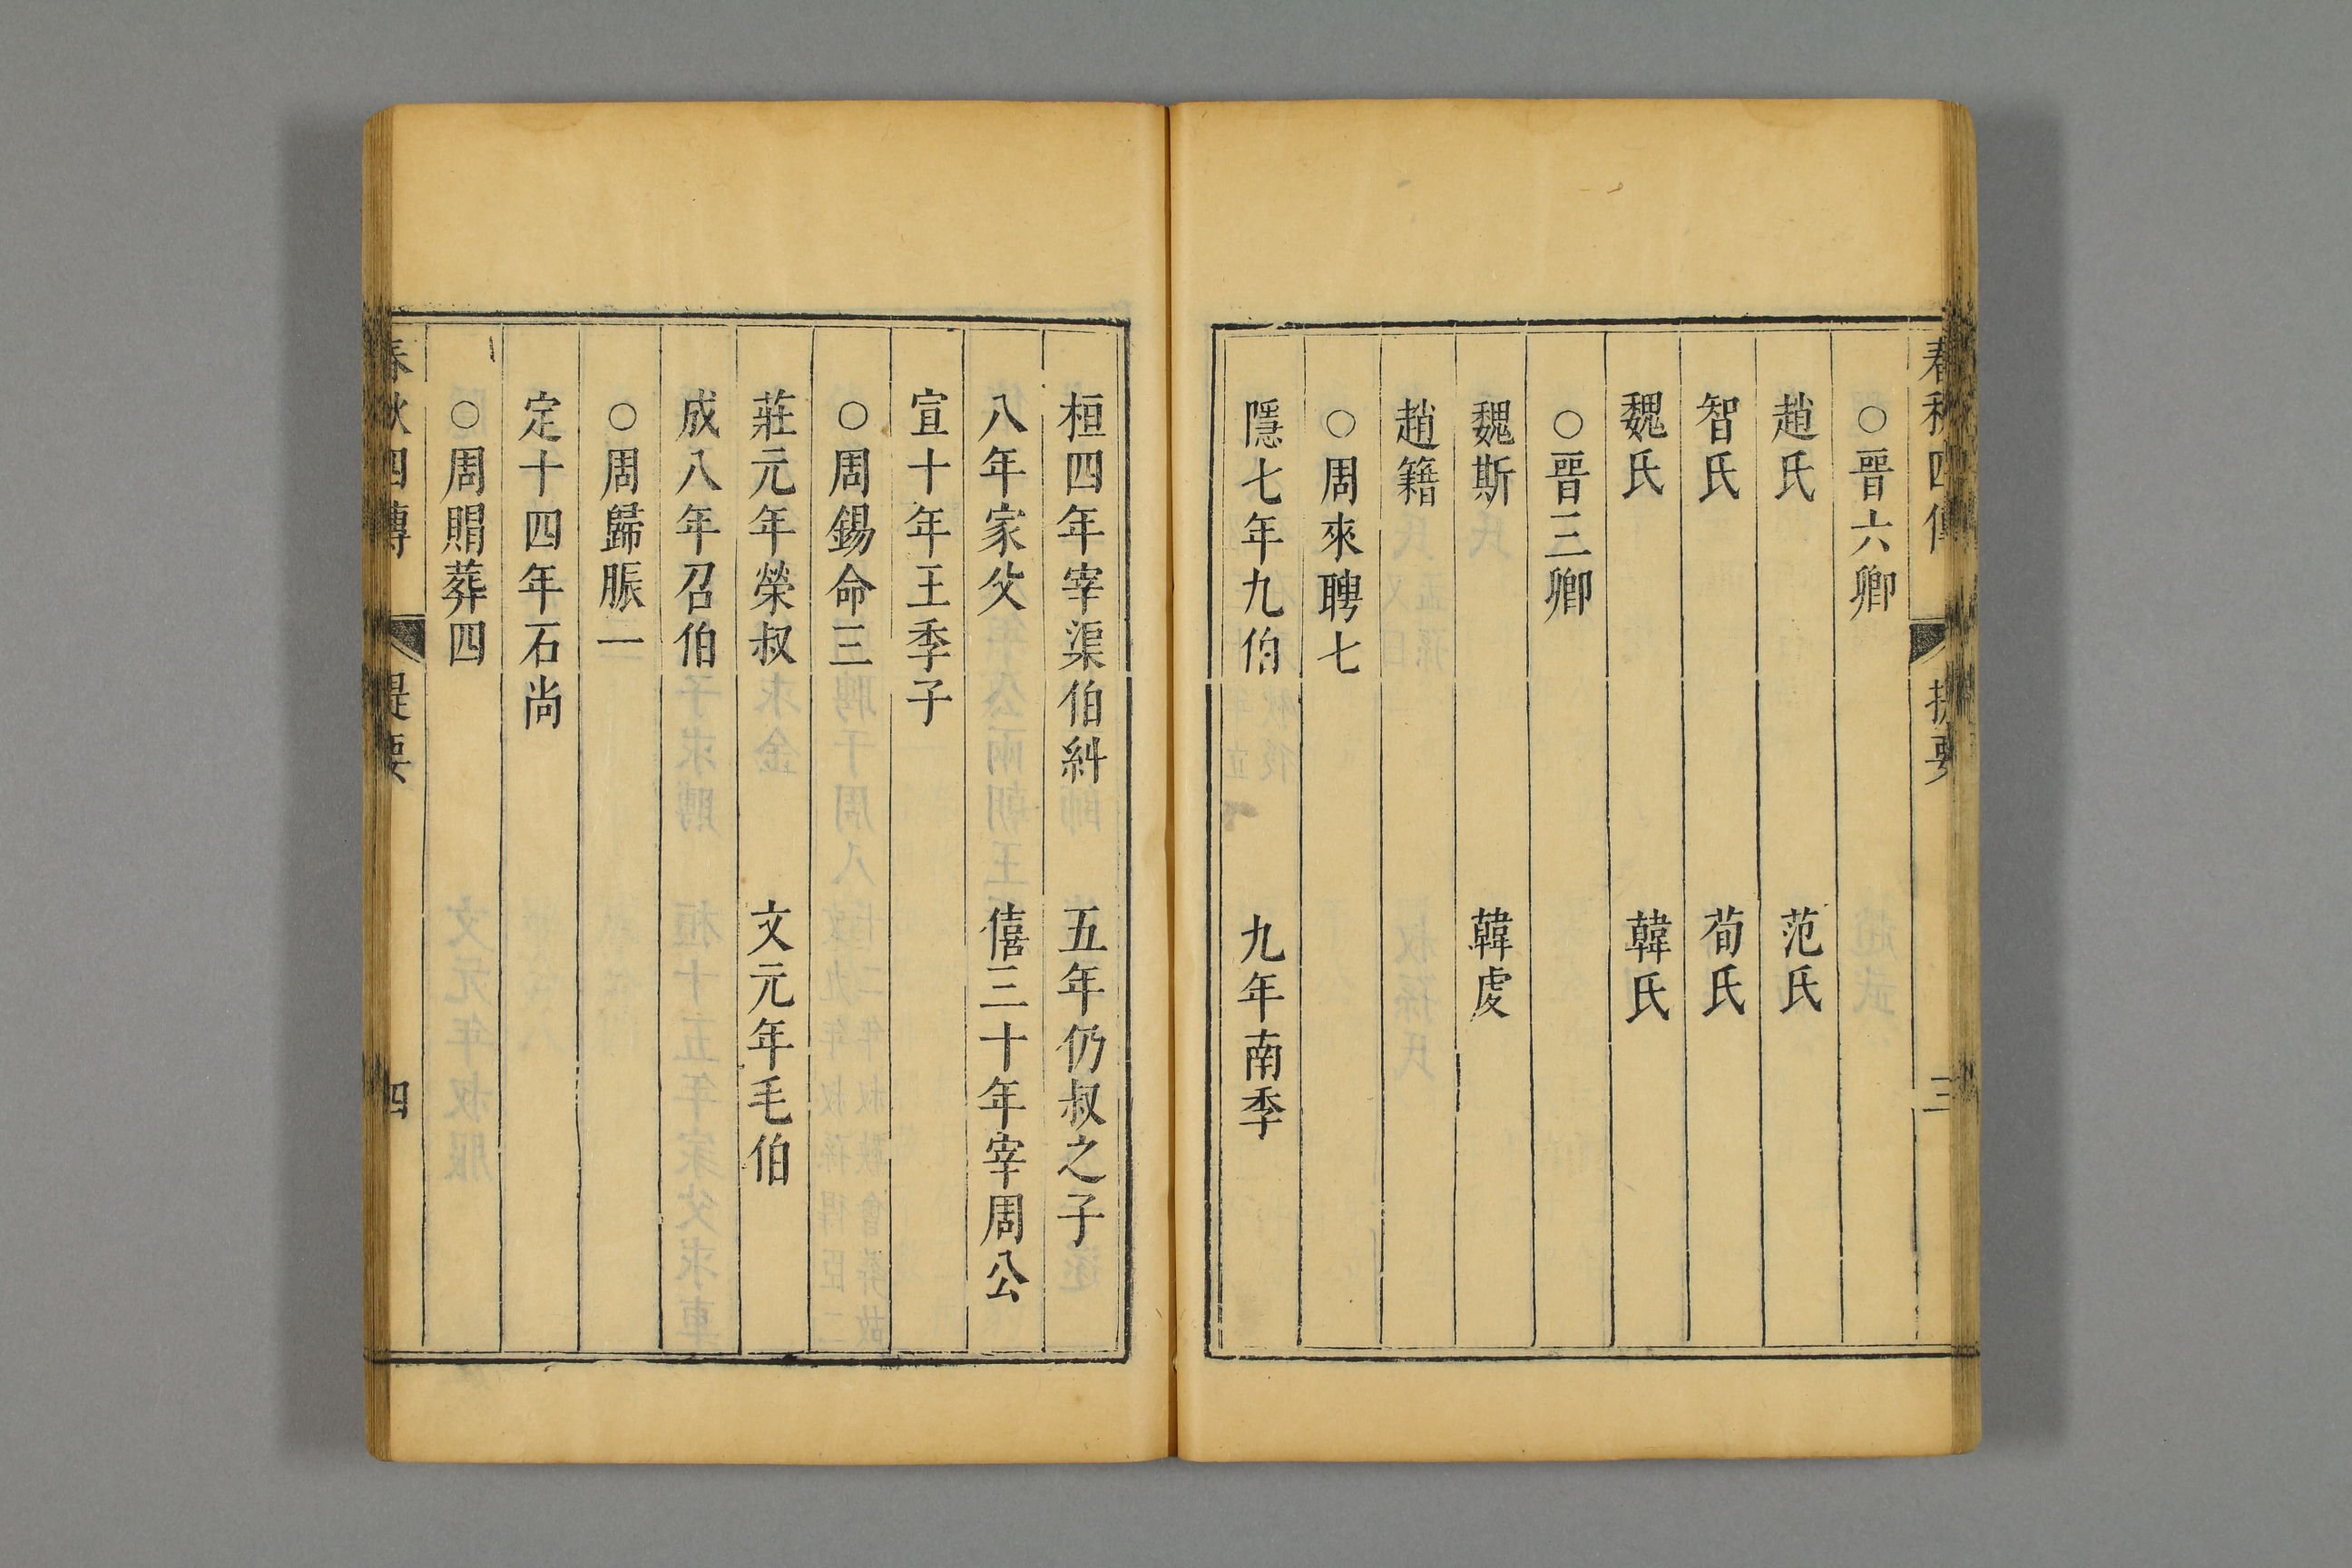 春秋四傳 提要 三
○晉六卿
趙氏 范氏
智氏 荀氏
魏氏 韓氏
○晉三卿
魏斯 韓虔
趙籍
○周來聘七
隱七年凡伯 九年南季
桓四年宰渠伯糾 五年仍叔之子
八年家父 僖三十年宰周公
宣十年王季子
○周錫命三
莊元年榮叔 文元年毛伯
成八年召伯
○周歸脤一
定十四年石尚
○周賵葬四
春秋四傳 提要 四